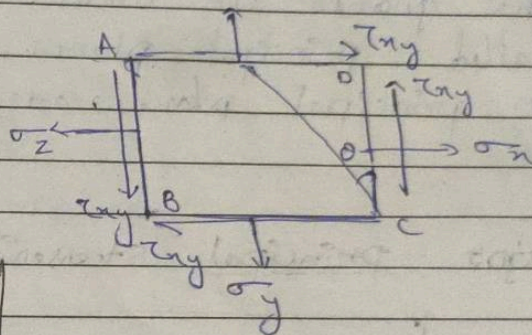 A τxy
D τxy
σz θ σx
τxy B C
τxy
σy